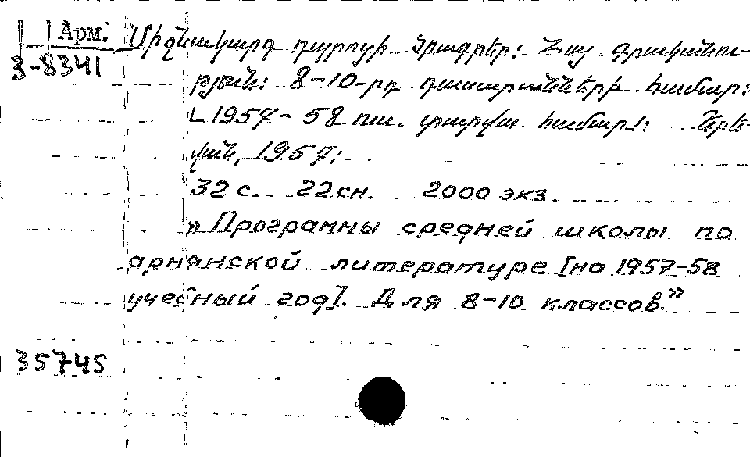 Арм.
3-8341
Միջնակարգ դպրոցի ծրագրեր: Հայ գրականու-
թյուն: 8-10-րդ դասարանների համար:
[1957-58 ուս. տարվա համար]: Երև-
ան, 1957:
32 с. 22 см. 2000 экз.
„Программы средней школы по
армянской литературе [на 1957-58
учебный год]. Для 8-10 классов."
35745